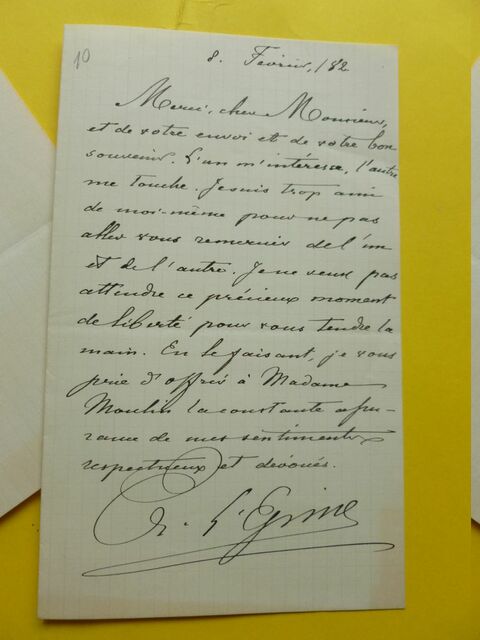 10
8. Février, /82
Merci, cher Monsieur,
et de votre envoi et de votre bon
souvenir. L'un m'intéresse, l'autre
me touche. Je suis trop ami
de moi-même pour ne pas
aller vous remercier de l'un
et de l'autre. Je ne veux pas
attendre ce précieux moment
de liberté pour vous tendre la
main. En le faisant, je vous
prie d'offrir à Madame
Moulin la constante assu-
rance de mes sentiments
respectueux et dévoués.